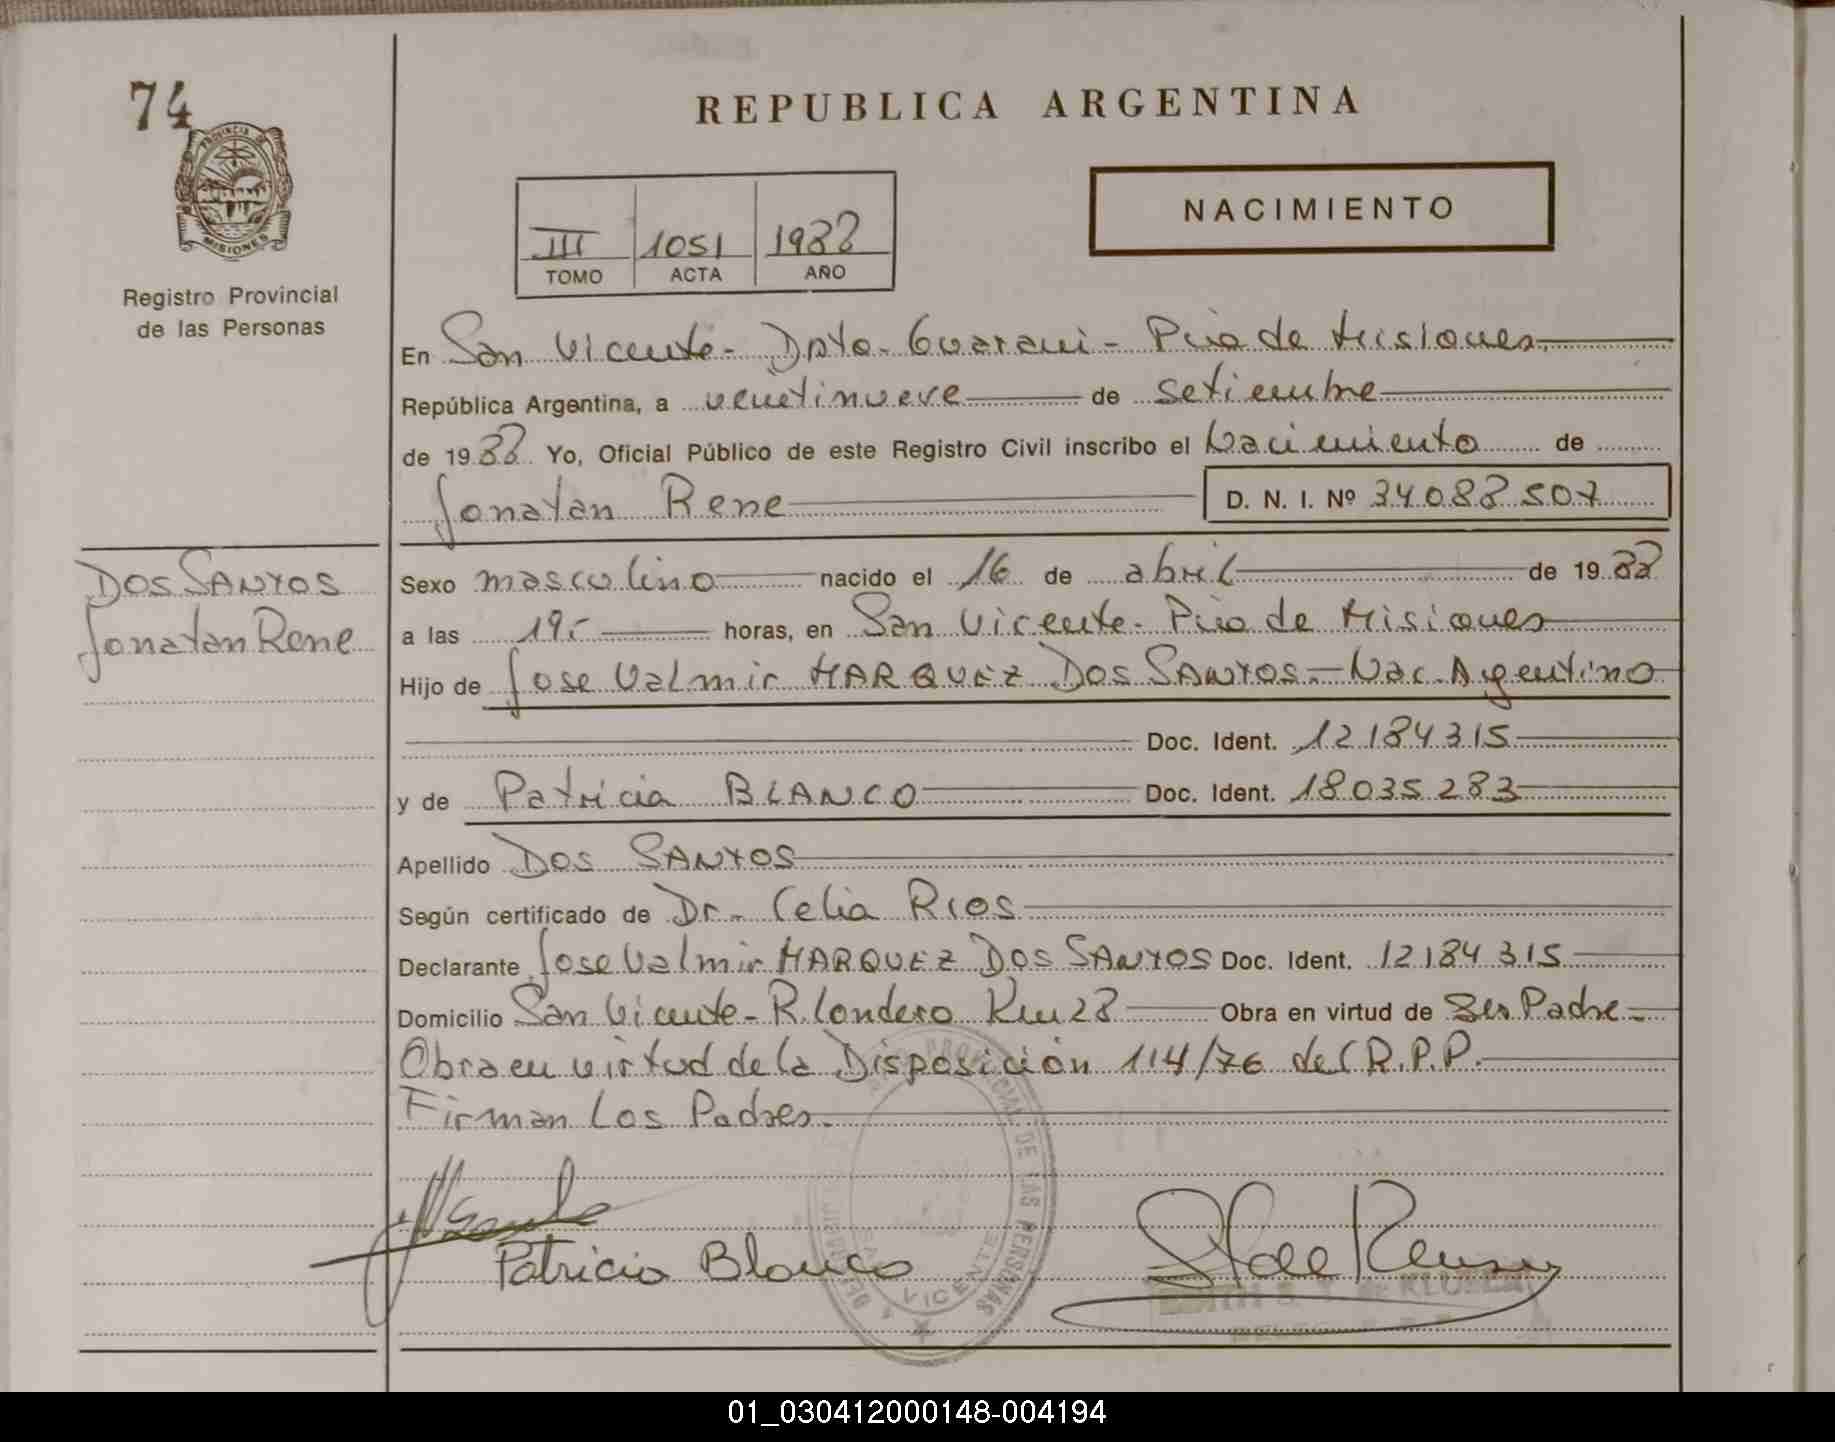 74
PROVINCIA DE
MISIONES
Registro Provincial
de las Personas
REPUBLICA ARGENTINA
NACIMIENTO
III 1051 1988
TOMO ACTA AÑO
En San Vicente - Dpto - Guarani - Pcia de Misiones
República Argentina, a veintinueve de setiembre
de 1988 Yo, Oficial Público de este Registro Civil inscribo el Nacimiento de
Jonatan Rene D. N. I. Nº 34.088.507
DOS SANTOS
Jonatan Rene
Sexo masculino nacido el 16 de abril de 1988
a las 19.- horas, en San Vicente - Pcia de Misiones
Hijo de Jose Valmir MARQUEZ DOS SANTOS.- Nac. Argentino
Doc. Ident. 12.184.315
y de Patricia BLANCO Doc. Ident. 18.035.283
Apellido DOS SANTOS
Según certificado de Dr. Celia Rios
Declarante Jose Valmir MARQUEZ DOS SANTOS Doc. Ident. 12.184.315
Domicilio San Vicente - R. Londero Km 28 Obra en virtud de Ser Padre
Obra en virtud de la Disposición 114/76 del R.P.P.
Firman Los Padres.
Patricia Blanco
PROVINCIAL DE LAS PERSONAS
SAN VICENTE
01_030412000148-004194